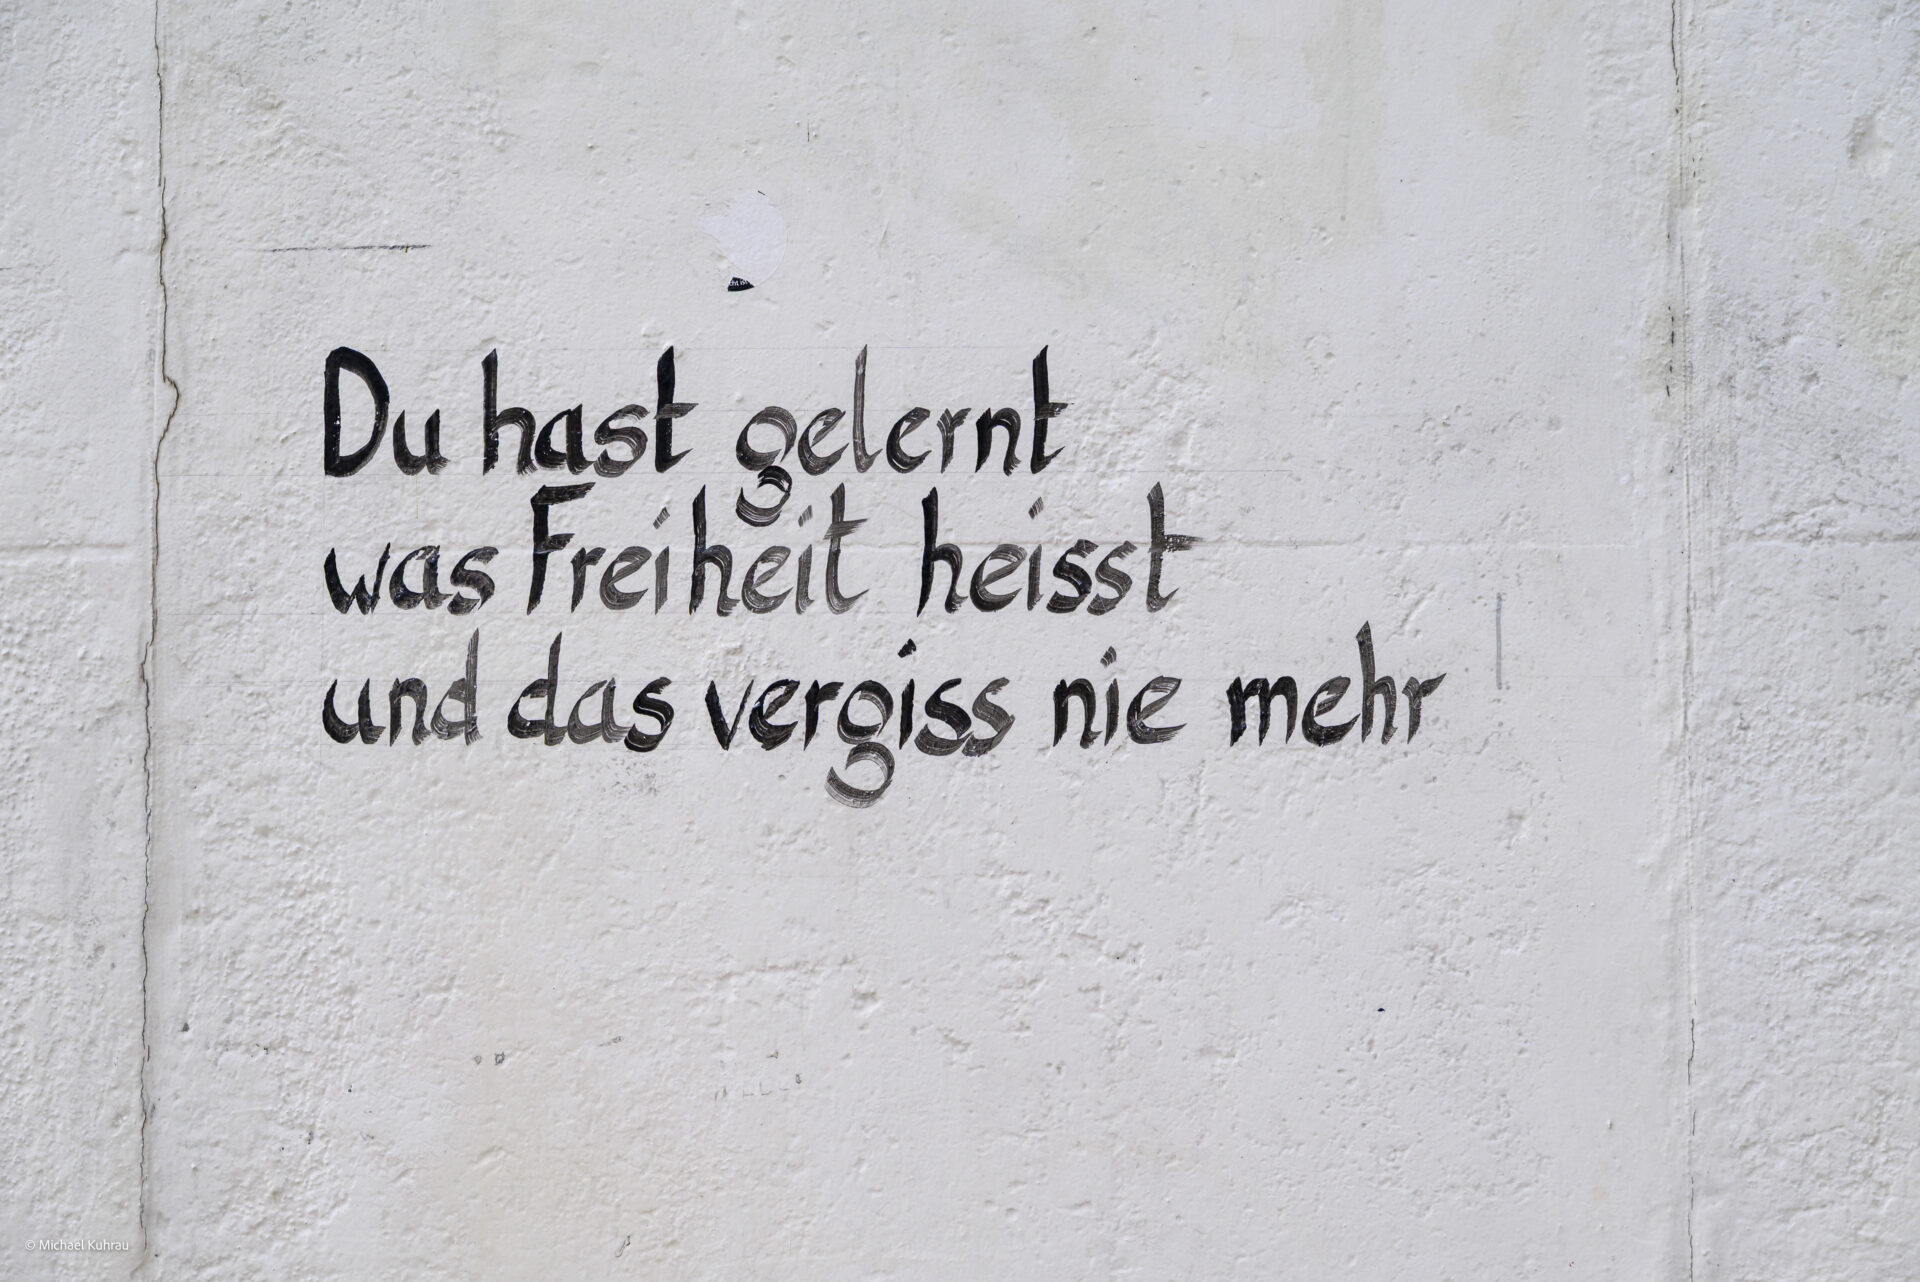 cht ist
Du hast gelernt
was Freiheit heisst
und das vergiss nie mehr
© Michael Kuhrau